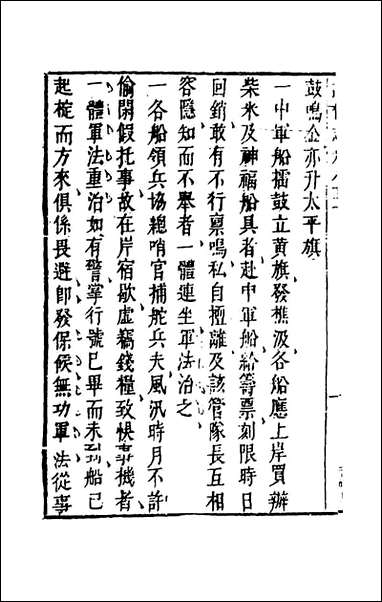 鼓鳴金亦升太平旗
一中軍船擂鼓立黃旗發樵汲各船應上岸買辦
柴米及神福船具者赴中軍船給籌票刻限時日
回銷敢有不行禀鳴私自擅離及該管隊長互相
容隱知而不舉者一體連坐軍法治之
一各船領兵協總哨官捕舵兵夫風汛時月不許
偷閑假托事故在岸宿歇虛竊錢糧致悞事機者
一體軍法重治如有警掌行號已畢而未到船已
起椗而方來俱係畏避即發保候無功軍法從事